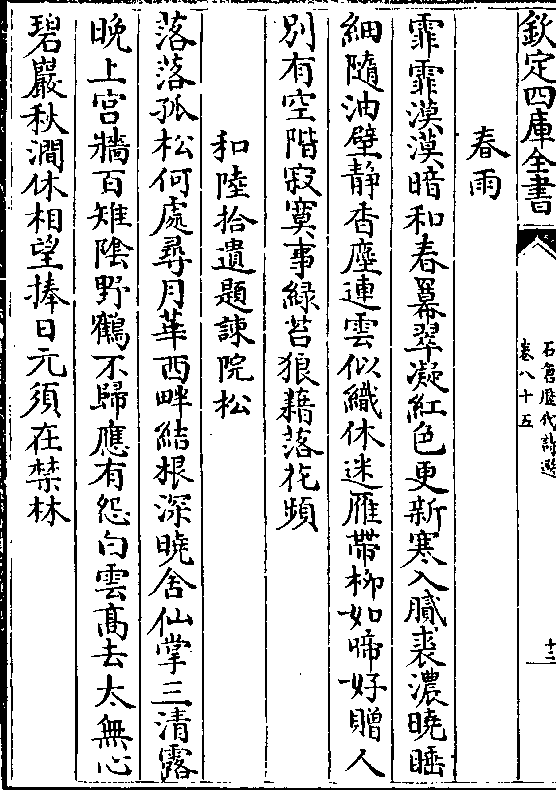 欽定四庫全書
石倉歷代詩選
卷八十五
十三
春雨
霏霏漠漠暗和春羃翠凝紅色更新寒入膩裘濃曉睡
細隨油壁靜香塵連雲似織休迷雁帶柳如啼好贈人
別有空階寂寞事緑苔狼藉落花頻
和陸拾遺題諫院松
落落孤松何處尋月華西畔結根深曉含仙掌三清露
晚上宫牆百雉隂野鶴不歸應有怨白雲髙去太無心
碧巖秋澗休相望捧日元須在禁林